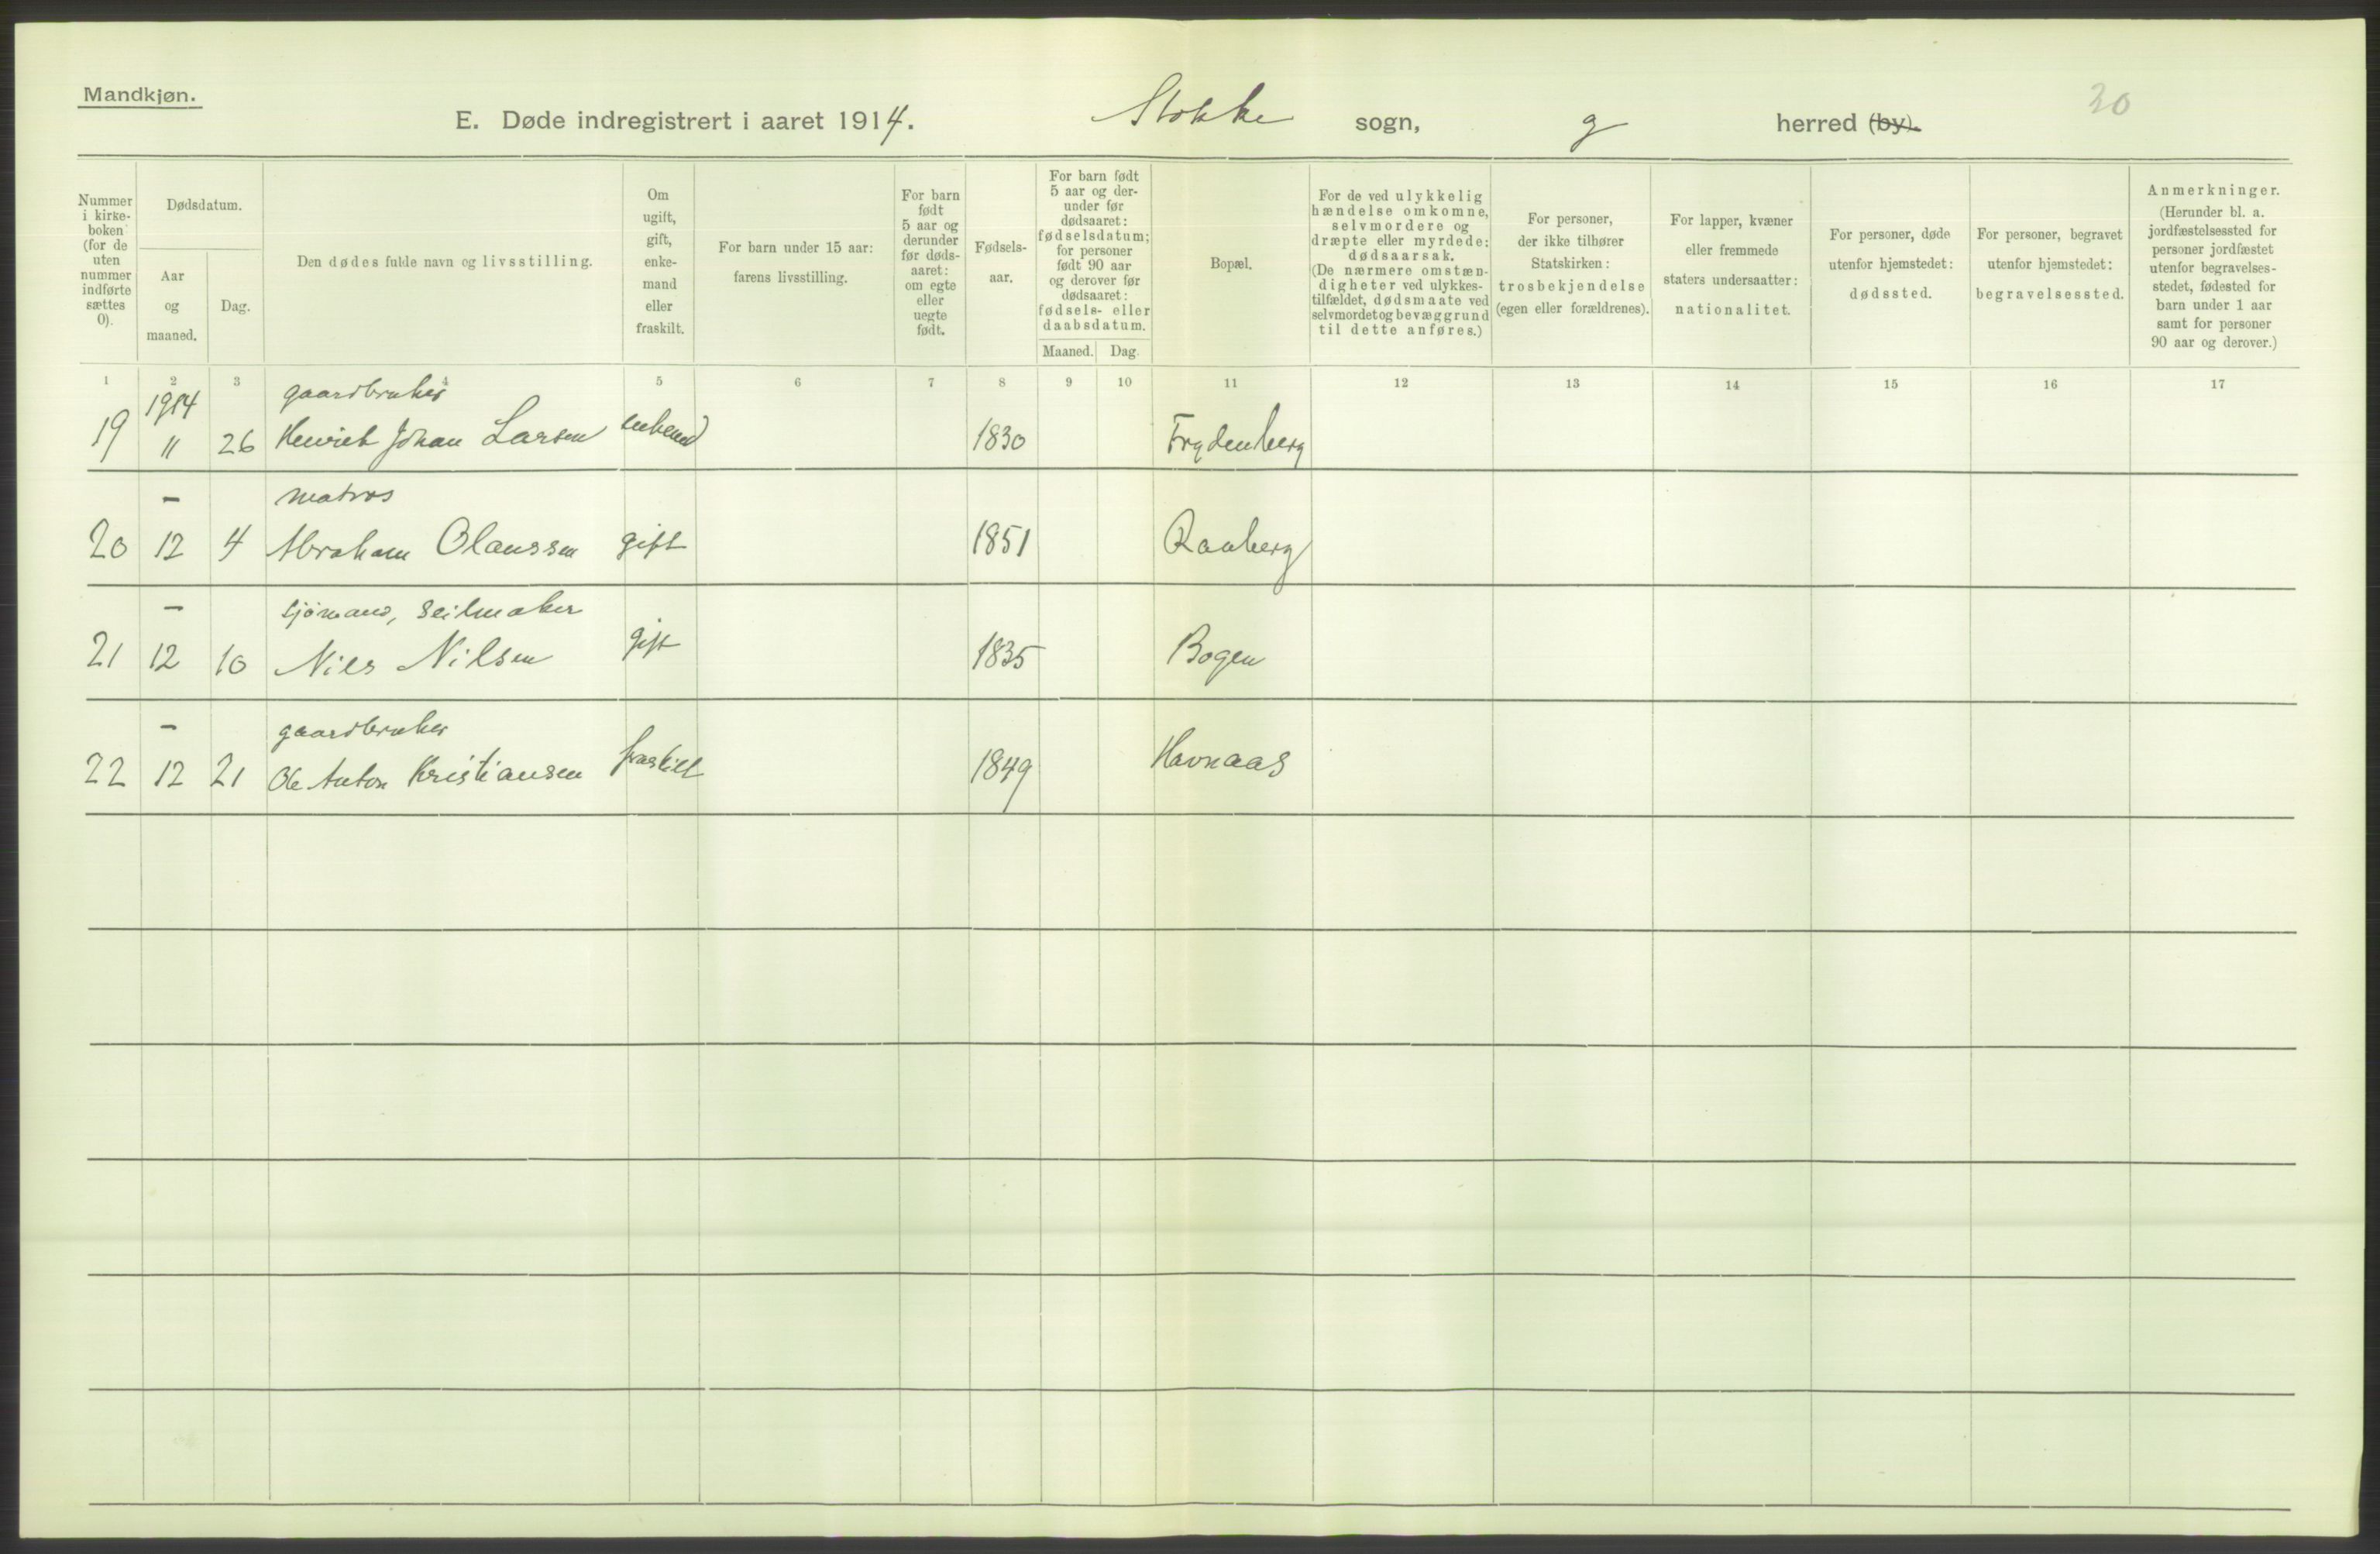 Mandkjøn.
E. Døde indregistrert i aaret 1914. Stokke sogn, g herred (by).
20
Nummer i kirke- boken (for de uten nummer indførte sættes 0).
Dødsdatum.
Aar og maaned.
Dag.
Den dødes fulde navn og livsstilling.
Om ugift, gift, enke- mand eller fraskilt.
For barn under 15 aar: farens livsstilling.
For barn født 5 aar og derunder før døds- aaret: om egte eller uegte født.
Fødsels- aar.
For barn født 5 aar og der- under før dødsaaret: fødselsdatum; for personer født 90 aar og derover før dødsaaret: fødsels- eller daabsdatum.
Maaned. Dag.
Bopæl.
For de ved ulykkelig hændelse omkomne, selvmordere og dræpte eller myrdede: dødsaarsak. (De nærmere omstæn- digheter ved ulykkes- tilfældet, dødsmaate ved selvmordet og bevæggrund til dette anføres.)
For personer, der ikke tilhører Statskirken: trosbekjendelse (egen eller forældrenes).
For lapper, kvæner eller fremmede staters undersaatter: nationalitet.
For personer, døde utenfor hjemstedet: dødssted.
For personer, begravet utenfor hjemstedet: begravelsessted.
Anmerkninger. (Herunder bl. a. jordfæstelsessted for personer jordfæstet utenfor begravelses- stedet, fødested for barn under 1 aar samt for personer 90 aar og derover.)
1 2 3 4 5 6 7 8 9 10 11 12 13 14 15 16 17
1914 gaardbruker
19 11 26 Henrich Johan Larsen enkemd 1830 Frydenberg
– matros
20 12 4 Abraham Olaussen gift 1851 Raaberg
– sjømand, seilmaker
21 12 10 Nils Nilsen gift 1835 Bogen
– gaardbruker
22 12 21 Ole Anton Kristiansen fraskilt 1849 Havnaas